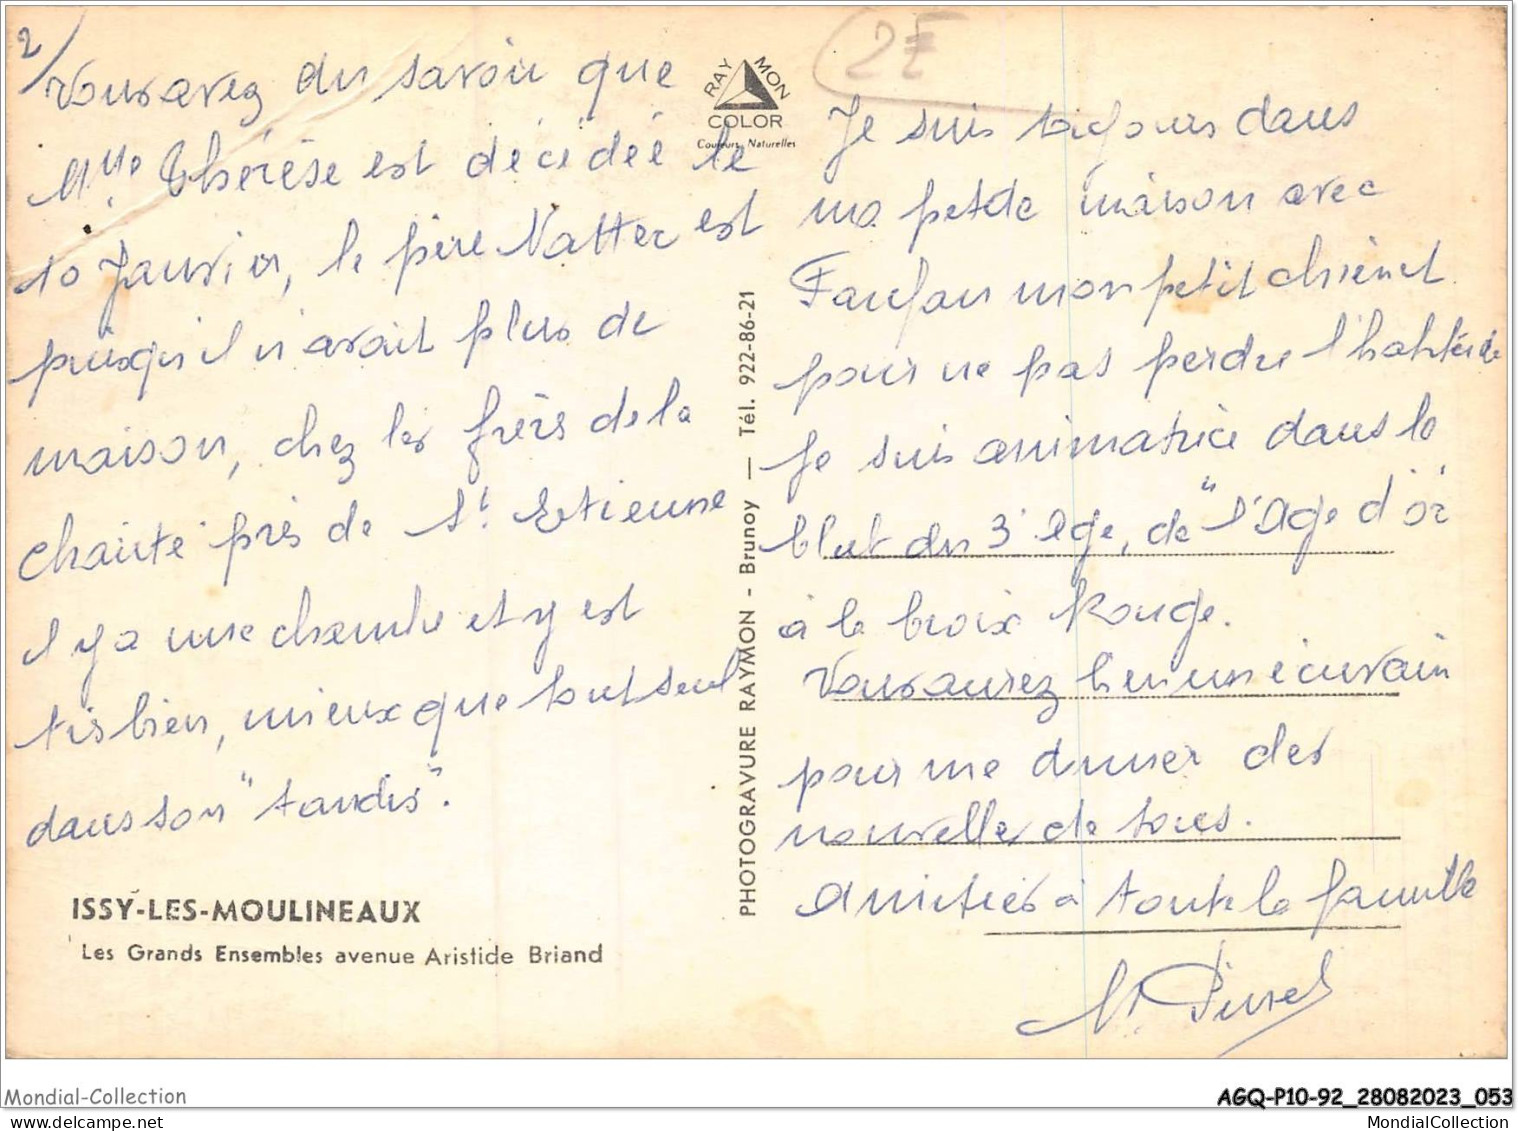 2/
Vous avez du savoir que
Mlle Thérèse est décédée le
10 Janvier, le père Natter est
puisqu'il n'avait plus de
maison, chez les frères de la
charité près de St. Etienne
il y a une chambre et y est
très bien, mieux que tout seul
dans son "taudis".
ISSY-LES-MOULINEAUX
Les Grands Ensembles avenue Aristide Briand
RAYMON
COLOR
Couleurs Naturelles
PHOTOGRAVURE RAYMON - Brunoy — Tél. 922-86-21
2E
Je suis toujours dans
ma petite maison avec
Fanfan mon petit chien et
pour ne pas perdre l'habitude
je suis animatrice dans le
club du 3e age, de "l'Age d'or
à la Croix Rouge.
Vous aurez bien une écrivain
pour me donner des
nouvelles de tous.
Amitiés à toute la famille
Mondial-Collection
AGQ-P10-92_28082023_053
delcampe.net
MondialCollection